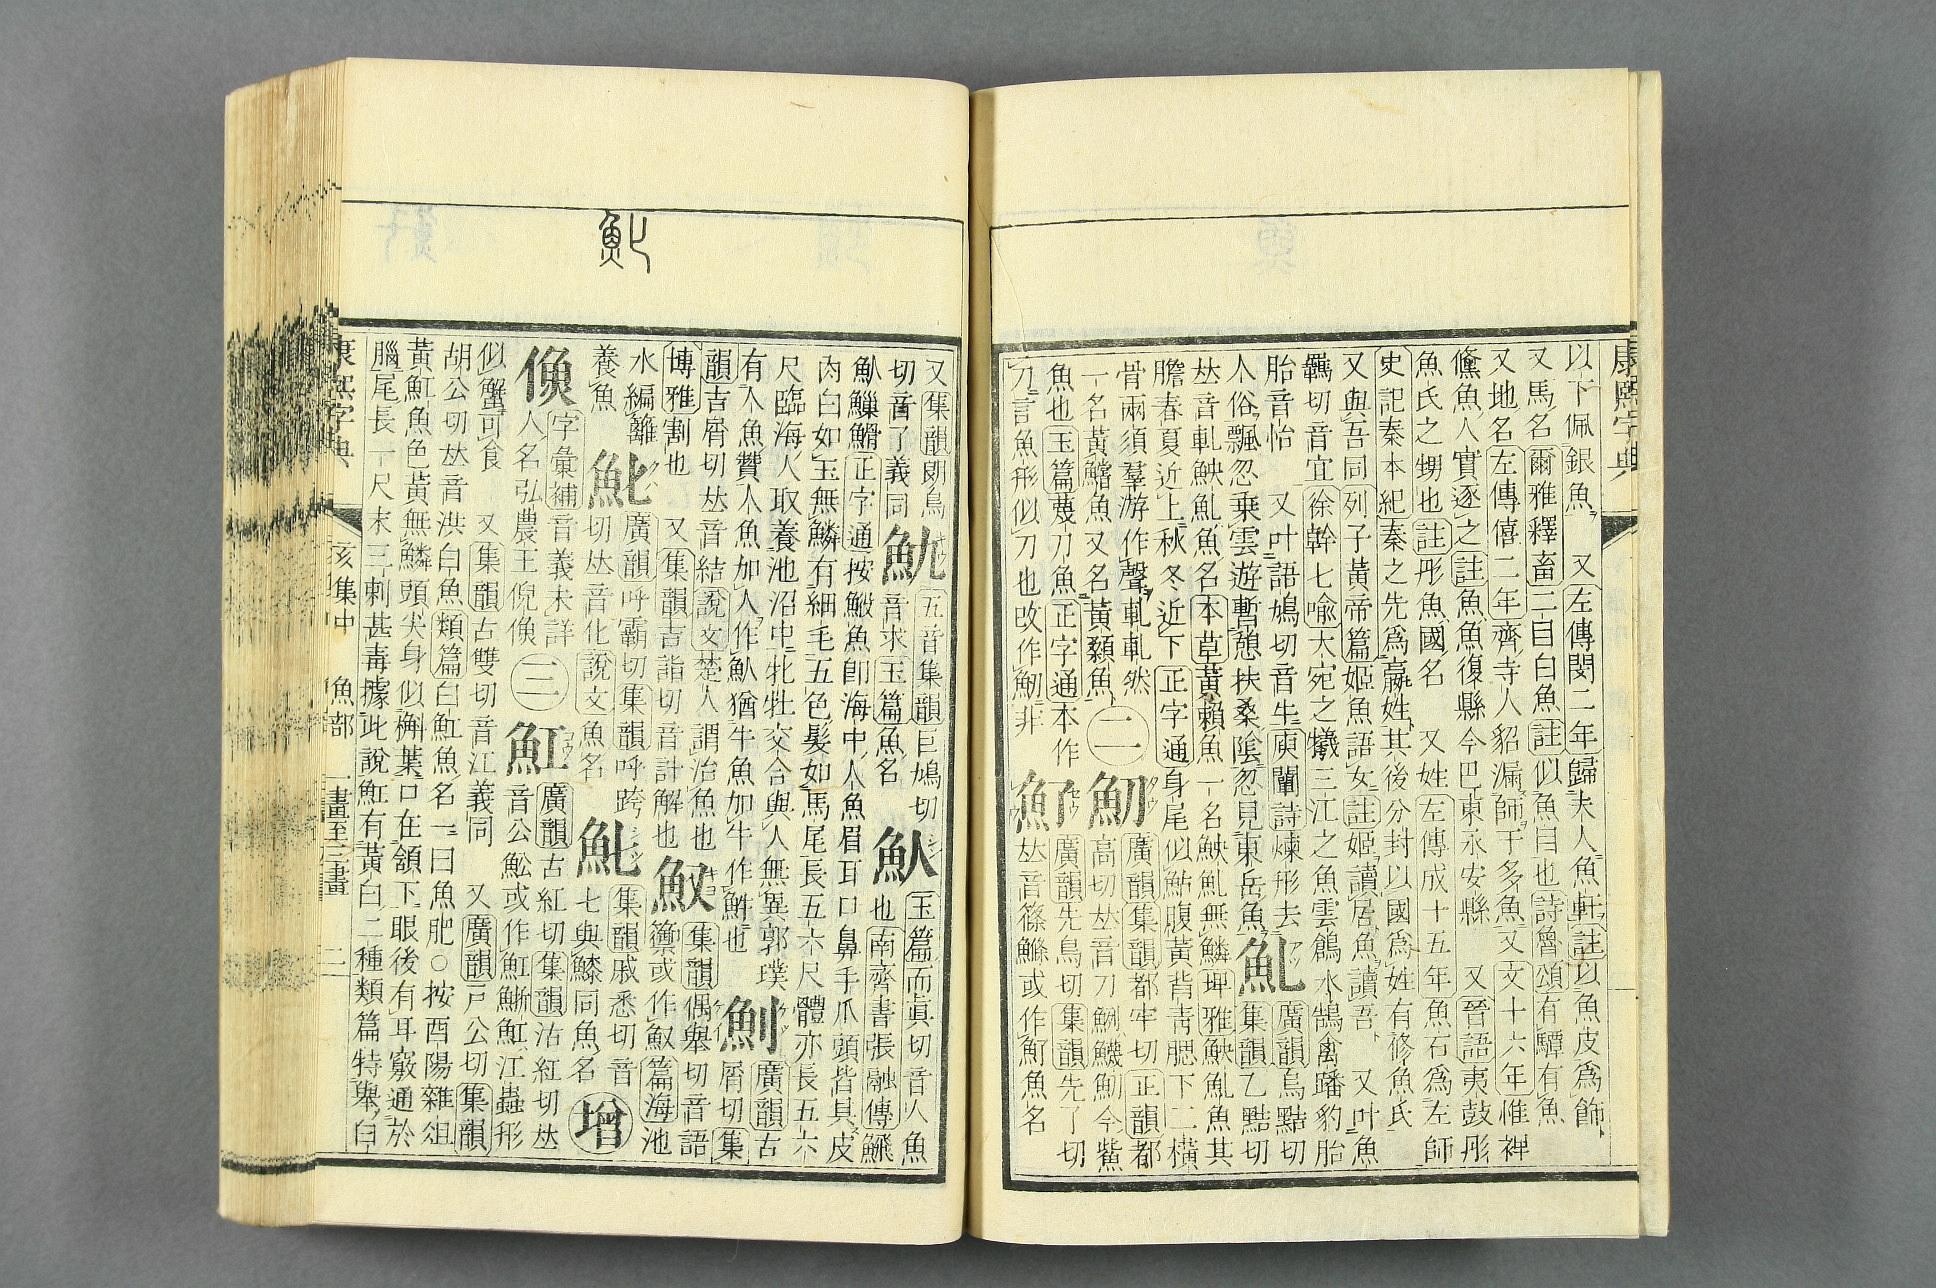 康熙字典
以下佩銀魚 又左傳閔二年歸夫人魚軒註以魚皮爲飾
又馬名爾雅釋畜二目白魚註似魚目也詩魯頌有驔有魚
又地名左傳僖二年齊寺人貂漏師于多魚又文十六年惟裨
鯈魚人實逐之註魚魚復縣今巴東永安縣 又晉語夷鼓彤
魚氏之甥也註彤魚國名 又姓左傳成十五年魚石爲左師
史記秦本紀秦之先爲嬴姓其後分封以國爲姓有修魚氏
又與吾同列子黃帝篇姬魚語女註姬讀居魚讀吾 又叶魚
羈切音宜徐幹七喻大宛之犧三江之魚雲鶬水鵠禽蹯豹胎
胎音怡 又叶語鳩切音牛庾闡詩煉形去
人俗飄忽乘雲遊暫憩扶桑陰忽見東岳魚
魤 廣韻烏黠切集韻乙黠切
𠀤音軋鴦魚名本草黃賴魚一名鴦無鱗埤雅魚其
膽春夏近上秋冬近下 正字通身尾似鮎腹黃背靑腮下二橫
骨兩須羣游作聲軋軋然
一名黃鱨魚又名黃顙魚 二
魛 廣韻集韻都牢切正韻都高切𠀤音刀魛鱴魛今鮆
魚也玉篇蔑刀魚正字通本作
刀言魚形似刀也改作魛非
魡 廣韻先鳥切集韻先了切
𠀤音篠鰷或作魚名
又集韻朗鳥切音了義同
魷 五音集韻巨鳩切音求玉篇魚名
魜 玉篇而眞切音人魚也南齊書張融傳
魜正字通按魜魚卽海中人魚眉耳口鼻手爪頭皆具皮
肉白如玉無鱗有細毛五色髮如馬尾長五六尺體亦長五六
尺臨海人取養池沼中牝牡交合與人無異郭璞
有人魚贊人魚加人作魜猶牛魚加牛作䱁也
魝 廣韻古屑切集
韻吉屑切𠀤音結說文楚人謂治魚也
博雅割也 又集韻吉詣切音計解也
䰻 集韻偶舉切音語籞或作䰻篇海池
水編籬養魚
魤 廣韻呼霸切集韻呼跨切𠀤音化說文魚名
䰿 集韻戚悉切音七與䲿同魚名
增
㒇 字彙補音義未詳人名弘農王倪㒇
三
魟 廣韻古紅切集韻沽紅切𠀤
音公魟或作䱋江蟲形
似蟹可食 又集韻古雙切音江義同 又廣韻戸公切集韻
胡公切𠀤音洪白魚類篇白魟魚名一曰魚肥○按酉陽雜俎
黃魟魚色黃無鱗頭尖身似槲葉口在頷下眼後有耳竅通於
腦尾長一尺末三刺甚毒據此說魟有黃白二種類篇特舉白
康熙字典 亥集中 魚部 一畫至三畫 二